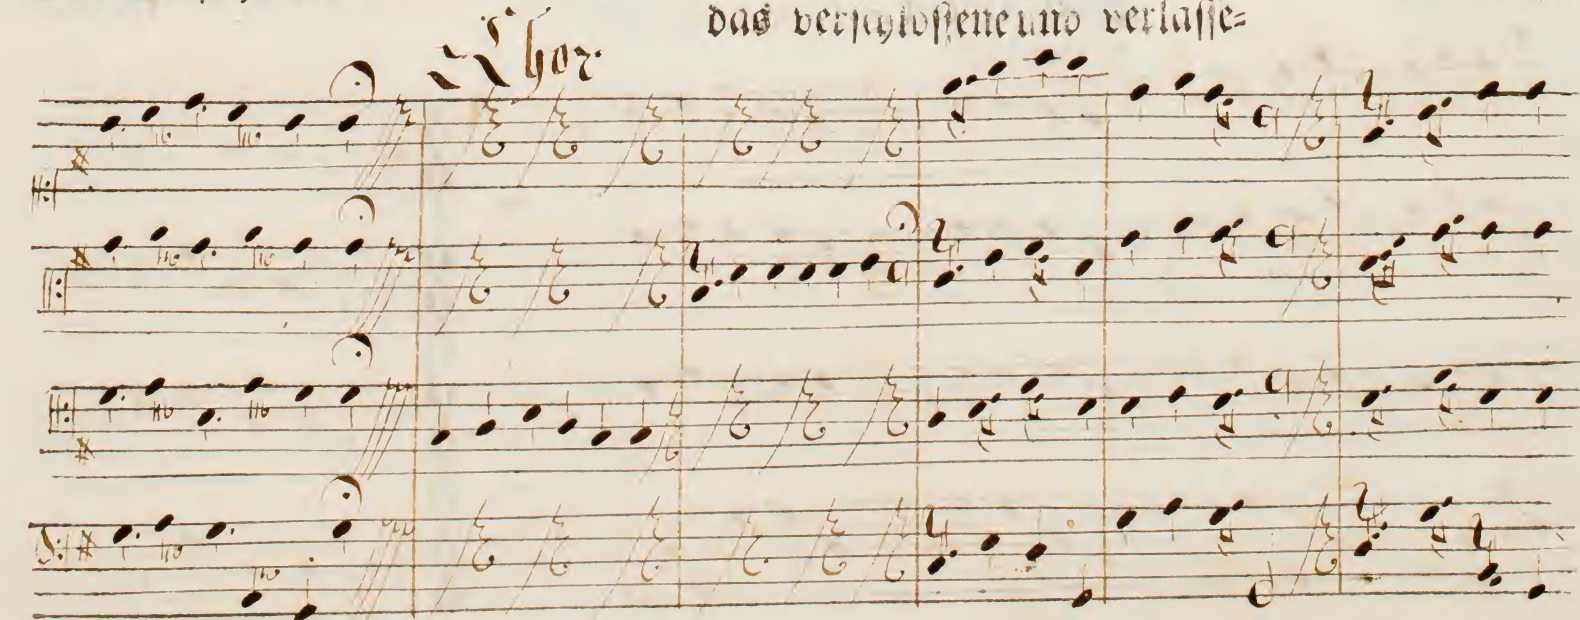 das verschloßene und verlasse=
Chor.